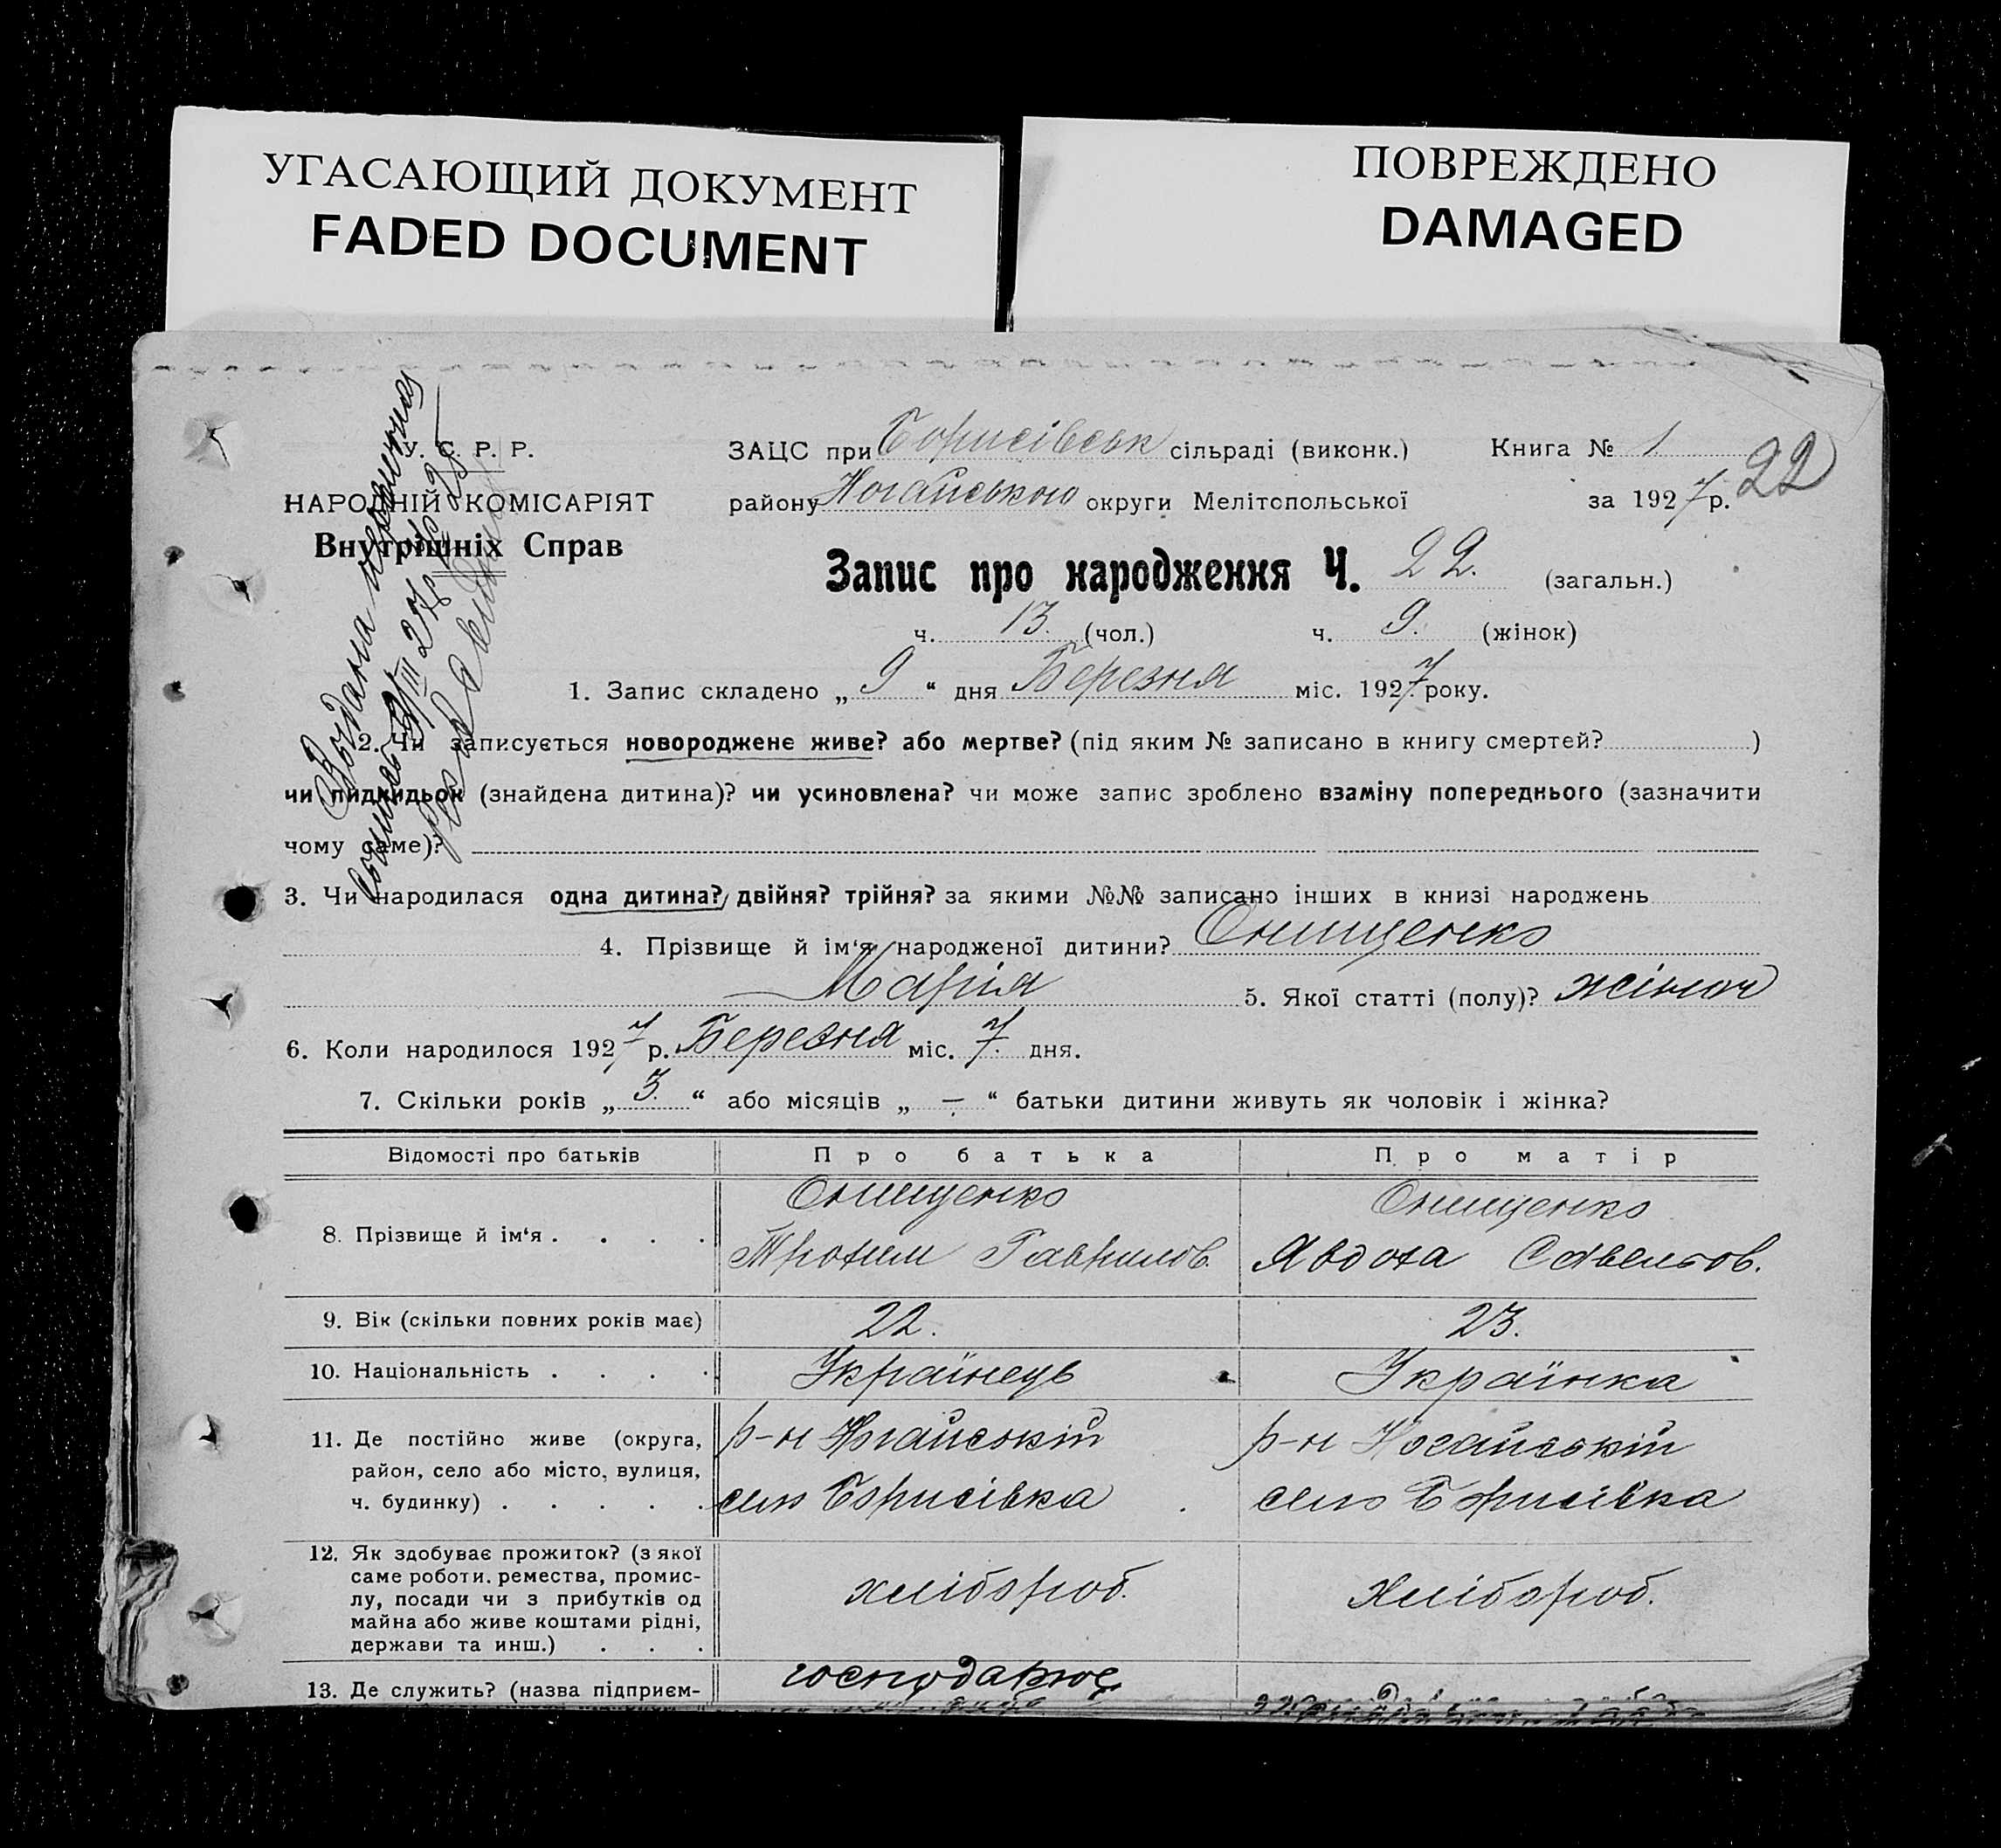 УГАСАЮЩИЙ ДОКУМЕНТ
FADED DOCUMENT
ПОВРЕЖДЕНО
DAMAGED
У. С. Р. Р.
НАРОДНІЙ КОМІСАРІЯТ
Внутрішніх Справ
ЗАЦС при Борисівськ сільраді (виконк.) Книга № 1
району Ногайського округи Мелітопольської за 1927 р. 22
Запис про народження Ч. 22. (загальн.)
ч. 13. (чол.) ч. 9. (жінок)
1. Запис складено „ 9 “ дня Березня міс. 1927 року.
2. Чи записується новороджене живе? або мертве? (під яким № записано в книгу смертей? )
чи підкидьок (знайдена дитина)? чи усиновлена? чи може запис зроблено взаміну попереднього (зазначити
чому саме)?
3. Чи народилася одна дитина? двійня? трійня? за якими №№ записано інших в книзі народжень
4. Прізвище й ім‘я народженої дитини? Онищенко
Марія 5. Якої статті (полу)? жіноч
6. Коли народилося 1927 р. Березня міс. 7. дня.
7. Скільки років „ 3. “ або місяців „ — “ батьки дитини живуть як чоловік і жінка?
Відомості про батьків Про батька Про матір
8. Прізвище й ім‘я . . . . Онищенко Онищенко
Трохим Гаврилов. Явдоха Савельов.
9. Вік (скільки повних років має) 22. 23.
10. Національність . . . . Українець Українка
11. Де постійно живе (округа, р-н Ногайській р-н Ногайській
район, село або місто, вулиця,
ч. будинку) . . . . . село Борисівка село Борисівка
12. Як здобуває прожиток? (з якої
саме роботи, ремества, промис-
лу, посади чи з прибутків од хлібороб. Хлібороб.
майна або живе коштами рідні,
держави та инш.) . . .
13. Де служить? (назва підприєм- господарює